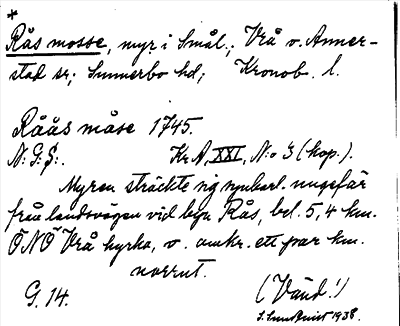 *
Rås mosse, myr i Smål.; Vrå o. Anner-
stad sr; Sunnerbo hd; Kronob. l.
Råås måse 1745.
N: G: S:. Kr A, XXI, N:o 3 (kop.).
Myren sträckte sig synbarl. ungefär
från landsvägen vid byn Rås, bel. 5,4 km.
ÖNÖ Vrå kyrka, o. omkr. ett par km.
norrut.
G. 14. (Vänd!)
S. Lundkvist 1938.